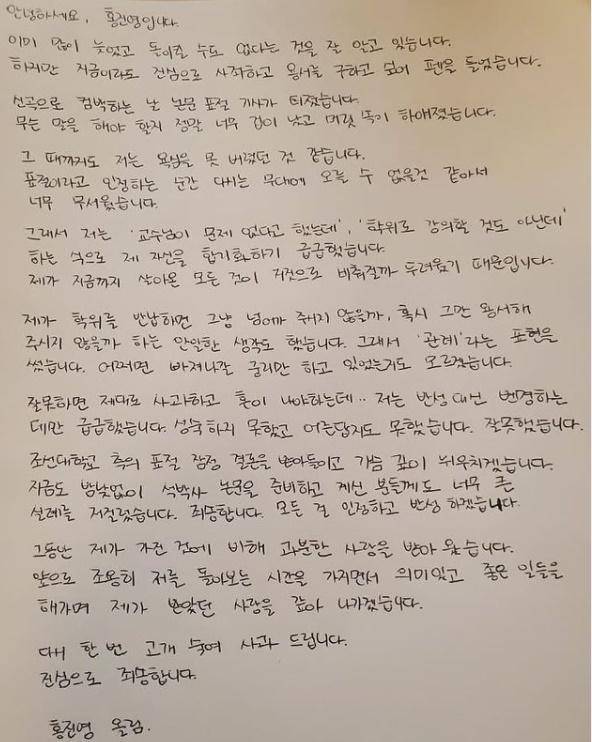 안녕하세요, 홍진영입니다.
이미 많이 늦었고 돌이킬 수도 없다는 것을 잘 알고 있습니다.
하지만 지금이라도 진심으로 사죄하고 용서를 구하고 싶어 펜을 들었습니다.
신곡으로 컴백하는 날 논문 표절 기사가 터졌습니다.
무슨 말을 해야 할지 정말 너무 겁이 났고 머릿 속이 하애졌습니다.
그 때까지도 저는 욕심을 못 버렸던 것 같습니다.
표절이라고 인정하는 순간 다시는 무대에 오를 수 없을것 같아서
너무 무서웠습니다.
그래서 저는 '교수님이 문제 없다고 했는데', '학위로 강의할 것도 아닌데'
하는 식으로 제 자신을 합기화하기 급급했습니다.
제가 지금까지 살아온 모든 것이 거짓으로 비춰질까 두려웠기 때문입니다.
제가 학위를 반납하면 그냥 넘어가 주시지 않을까, 혹시 그만 용서해
주시지 않을까 하는 안일한 생각도 했습니다. 그래서 '관례'라는 표현을
썼습니다. 어쩌면 빠져나갈 궁리만 하고 있었는지도 모르겠습니다.
잘못하면 제대로 사과하고 혼이 나야하는데.. 저는 반성 대신 변명하는
데만 급급했습니다. 성숙하지 못했고 어른답지도 못했습니다. 잘못했습니다.
조선대학교 측의 표절 잠정 결론을 받아들이고 가슴 깊이 뉘우치겠습니다.
지금도 밤낮없이 석박사 논문을 준비하고 계신 분들께도 너무 큰
실례를 저질렀습니다. 죄송합니다. 모든 걸 인정하고 반성 하겠습니다.
그동안 제가 가진 것에 비해 과분한 사랑을 받아 왔습니다.
앞으로 조용히 저를 돌아보는 시간을 가지면서 의미있고 좋은 일들을
해가며 제가 받았던 사랑을 갚아 나가겠습니다.
다시 한 번 고개 숙여 사과 드립니다.
진심으로 죄송합니다.
홍진영 올림.